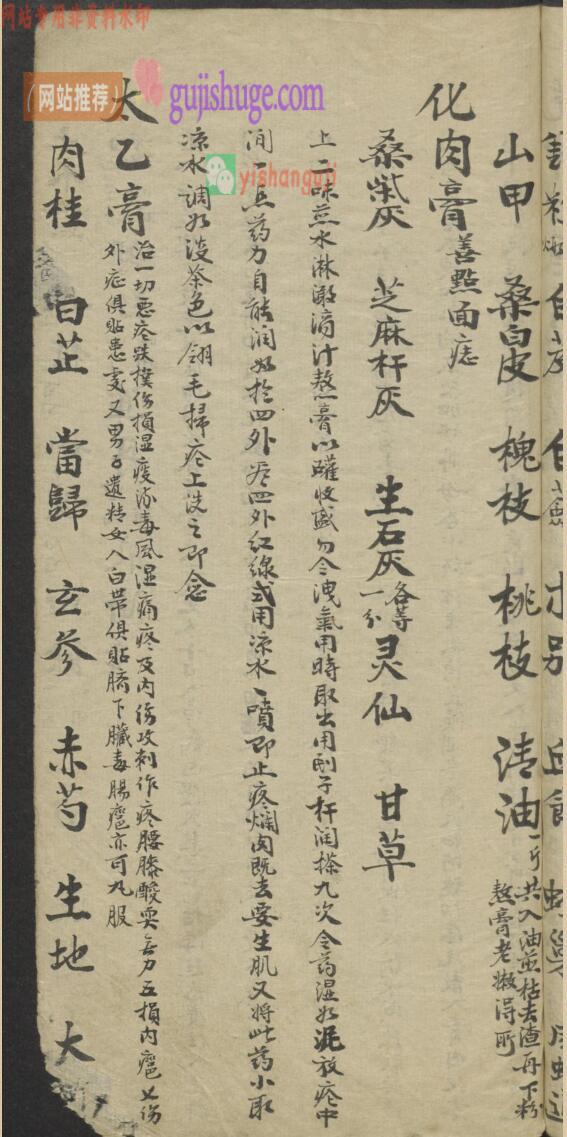 网站专用非资料水印
（网站推荐）
gujishuge.com
yishanguji
山甲 桑白皮 槐枝 桃枝 清油一斤 共入油煎枯去渣再下粉
熬膏老嫩得所
化肉膏 善點面痣
桑柴灰 芝麻杆灰 生石灰 各等一分 灵仙 甘草
上二味煎水淋濾滴汁熬膏以罐收盛勿令洩氣用時取出用刮子杆润搽九次令药湿如泥放疮中
间一点药力自能润如於四外疮四外红線式用凉水一噴即止疼爛肉既去要生肌又將此药小取
凉水调如淡茶色以翎毛掃疮上洗之即念
太乙膏 治一切悪疮跌撲伤損湿痰流毒風湿痛疼及内伤攻刺作疼腰膝酸耎無力五損内癰七伤
外症俱貼患處又男子遺精女人白帶俱貼臍下臟毒腸癰亦可丸服
肉桂 白芷 當歸 玄参 赤芍 生地 大